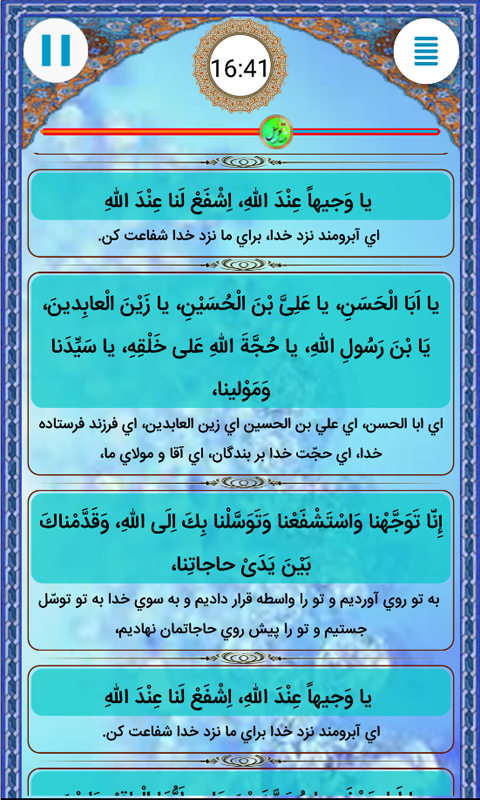 16:41
توسل
يا وَجيهاً عِنْدَ اللهِ، اِشْفَعْ لَنا عِنْدَ اللهِ
اي آبرومند نزد خدا، براي ما نزد خدا شفاعت کن.
يا اَبَا الْحَسَنِ، يا عَلِىَّ بْنَ الْحُسَيْنِ، يا زَيْنَ الْعابِدينَ،
يَا بْنَ رَسُولِ اللهِ، يا حُجَّةَ اللهِ عَلى خَلْقِهِ، يا سَيِّدَنا
وَمَوْلينا،
اي ابا الحسن، اي علي بن الحسين اي زين العابدين، اي فرزند فرستاده
خدا، اي حجّت خدا بر بندگان، اي آقا و مولاي ما،
إِنّا تَوَجَّهْنا وَاسْتَشْفَعْنا وَتَوَسَّلْنا بِكَ اِلَى اللهِ، وَقَدَّمْناكَ
بَيْنَ يَدَىْ حاجاتِنا،
به تو روي آورديم و تو را واسطه قرار داديم و به سوي خدا به تو توسّل
جستيم و تو را پيش روي حاجاتمان نهاديم،
يا وَجيهاً عِنْدَ اللهِ، اِشْفَعْ لَنا عِنْدَ اللهِ
اي آبرومند نزد خدا براي ما نزد خدا شفاعت کن.